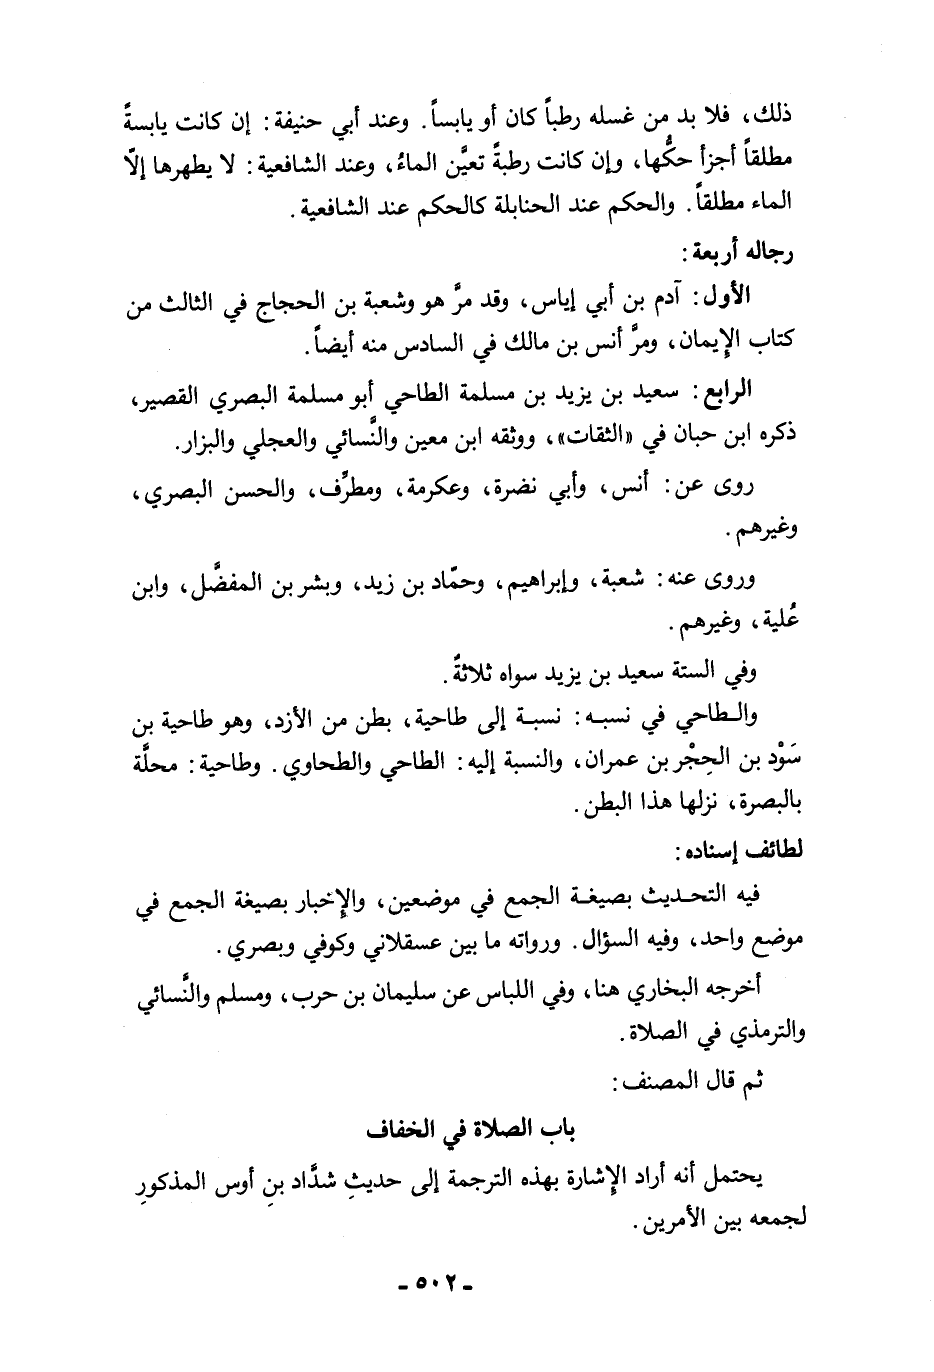 ذلك، فلا بد من غسله رطباً كان أو يابساً. وعند أبي حنيفة: إن كانت يابسةً
مطلقاً أجزأ حكُّها، وإن كانت رطبةً تعيَّن الماءُ، وعند الشافعية: لا يطهرها إلاّ
الماء مطلقاً. والحكم عند الحنابلة كالحكم عند الشافعية.
رجاله أربعة:
الأول: آدم بن أبي إياس، وقد مرَّ هو وشعبة بن الحجاج في الثالث من
كتاب الإيمان، ومرَّ أنس بن مالك في السادس منه أيضاً.
الرابع: سعيد بن يزيد بن مسلمة الطاحي أبو مسلمة البصري القصير،
ذكره ابن حبان في «الثقات»، ووثقه ابن معين والنَّسائي والعجلي والبزار.
روى عن: أنس، وأبي نضرة، وعكرمة، ومطرِّف، والحسن البصري،
وغيرهم.
وروى عنه: شعبة، وإبراهيم، وحمّاد بن زيد، وبشر بن المفضَّل، وابن
عُلية، وغيرهم.
وفي الستة سعيد بن يزيد سواه ثلاثةٌ.
والطاحي في نسبه: نسبة إلى طاحية، بطن من الأزد، وهو طاحية بن
سَوْد بن الحِجْر بن عمران، والنسبة إليه: الطاحي والطحاوي. وطاحية: محلَّة
بالبصرة، نزلها هذا البطن.
لطائف إسناده:
فيه التحديث بصيغة الجمع في موضعين، والإخبار بصيغة الجمع في
موضع واحد، وفيه السؤال. ورواته ما بين عسقلاني وكوفي وبصري.
أخرجه البخاري هنا، وفي اللباس عن سليمان بن حرب، ومسلم والنَّسائي
والترمذي في الصلاة.
ثم قال المصنف:
باب الصلاة في الخفاف
يحتمل أنه أراد الإشارة بهذه الترجمة إلى حديثِ شدَّاد بنِ أوس المذكورِ
لجمعه بين الأمرين.
- ٥٠٢ -